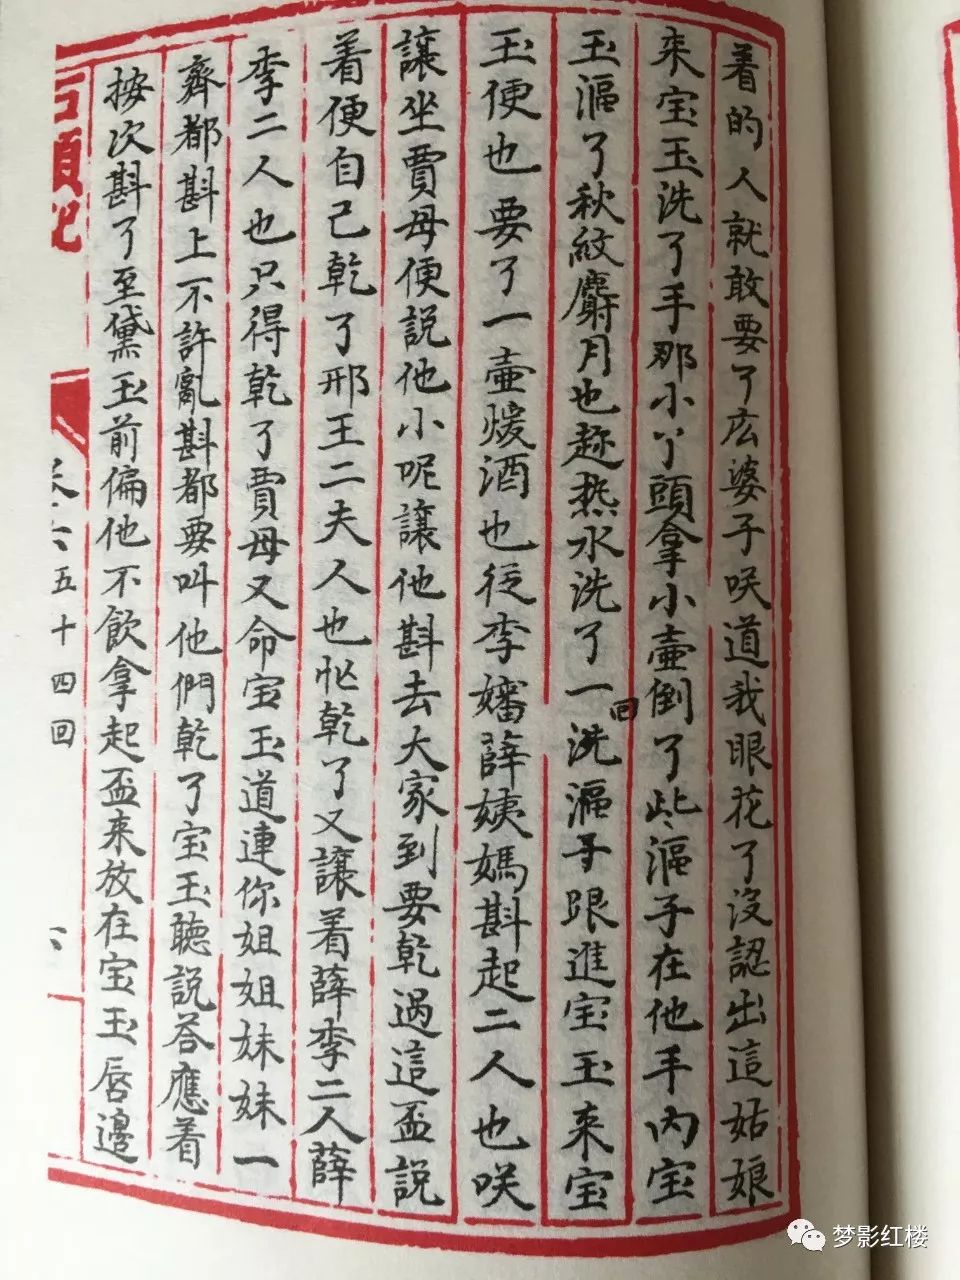 着的人就敢要了庅婆子咲道我眼花了沒認出這姑娘
来宝玉洗了手那小丫頭拿小壷倒了些漚子在他手内宝
玉漚了秋紋麝月也趂热水洗了一洗漚子跟進宝玉来宝
回
玉便也要了一壷煖酒也従李嬸薛姨媽斟起二人也咲
讓坐賈母便説他小呢讓他斟去大家到要乾過這盃説
着便自己乾了邢王二夫人也忙乾了又讓着薛李二人薛
李二人也只得乾了賈母又命宝玉道連你姐姐妹妹一
齊都斟上不許亂斟都要叫他們乾了宝玉聴説答應着
按次斟了至黛玉前偏他不飲拿起盃来放在宝玉唇邊
石頭記
五十四回
梦影红楼